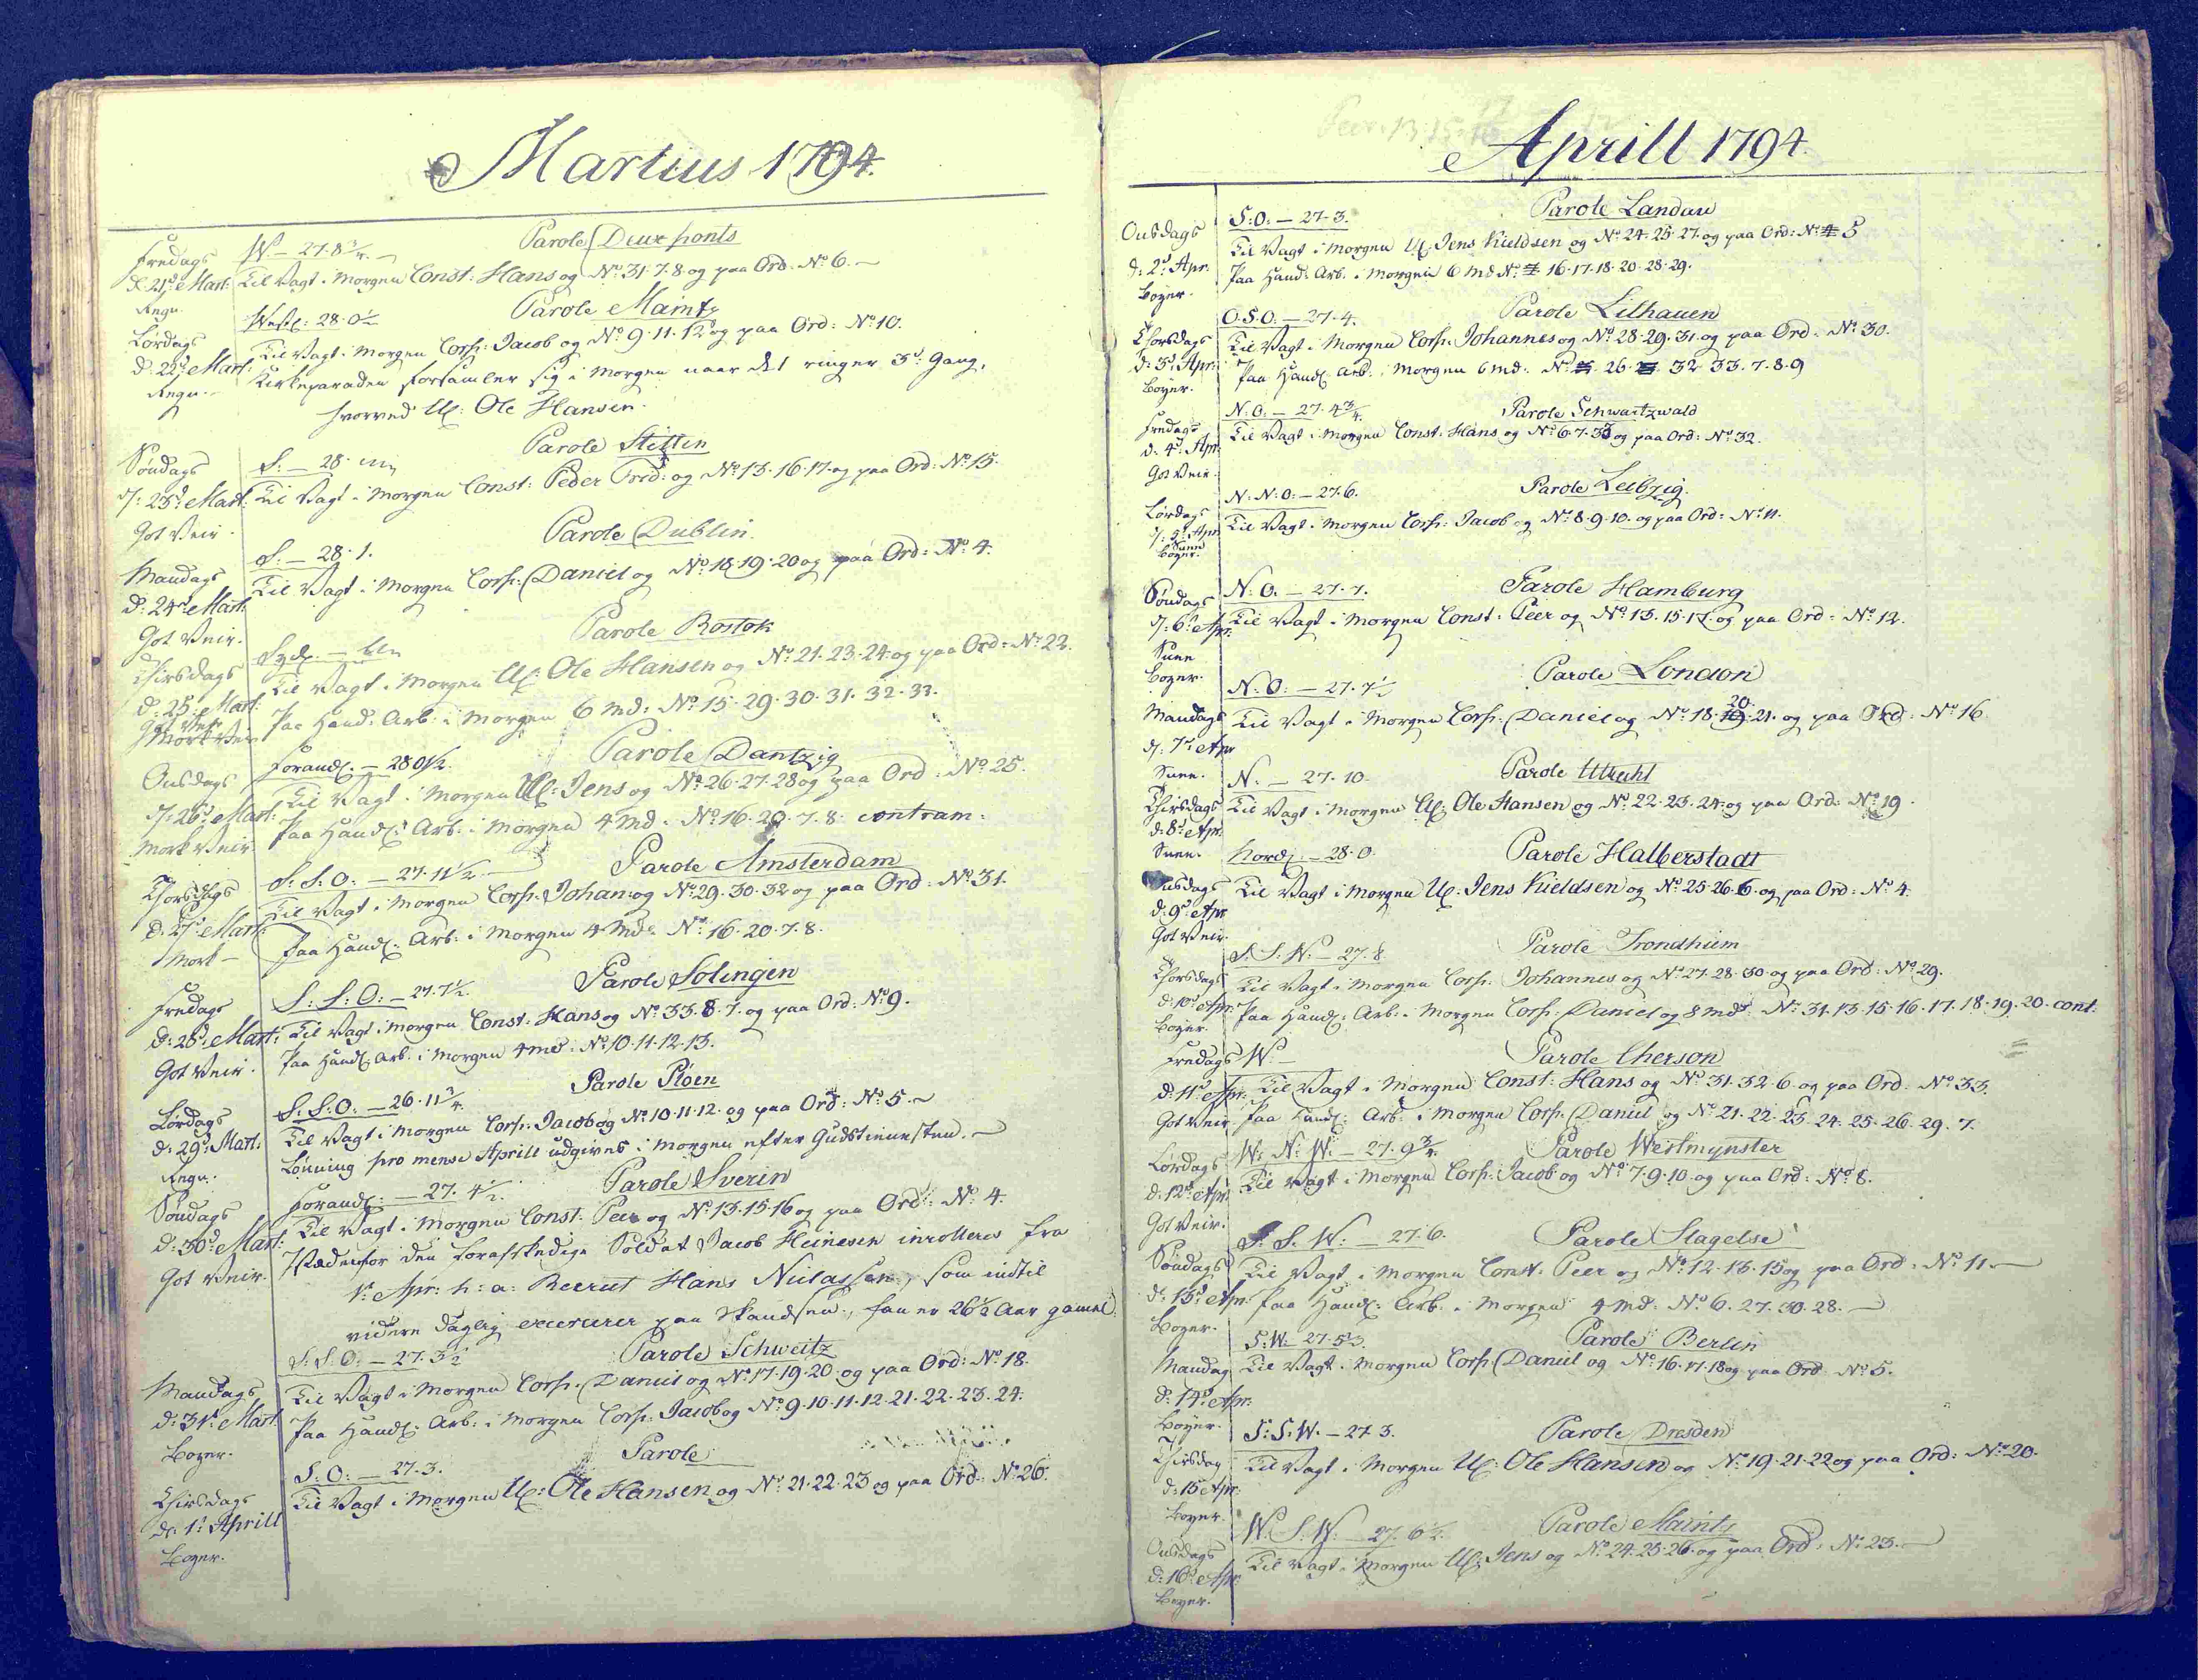 Martius 1794.
Fredags W. — 27. 8 3/4. — Parole Deux ponts
d: 21d Mart: Til Vagt i Morgen Const. Hans og No 31. 7. 8 og paa Ord. No 6. —
Regn.
Lørdags West: 28. 0 1/2 Parole Maintz
d: 22d Mart: Til Vagt i Morgen Corp: Jacob og No 9. 11. 12 og paa Ord: No 10.
Regn. Kirkeparaden forsamler sig i Morgen naar det ringer 3d Gang,
hvorved U: Ole Hansen.
Søndags S: — 28. Parole Stettin
d: 23d Mart: Til Vagt i Morgen Const: Peder Frid: og No 13. 16. 17. og paa Ord: No 15.
Got Veir.
Mandags S. — 28. 1. Parole Dublin
d: 24d Mart: Til Vagt i Morgen Corp: Daniel og No 18. 19. 20 og paa Ord: No 4.
Got Veir.
Tirsdags Syd. — Parole Rostok
d: 25 Mart: Til Vagt i Morgen U: Ole Hansen og No 21. 23. 24. og paa Ord: No 22.
Mork Veir Paa Hand: Arb: i Morgen 6 Md: No 15. 29. 30. 31. 32. 33.
Onsdags Forand: — 28 0 1/2. Parole Dantzig
d: 26d Mart: Til Vagt i Morgen U: Jens og No 26. 27. 28 og paa Ord: No 25.
Mork Veir Paa Hand: Arb: i Morgen 4 Md. No 16. 20. 7. 8. contram:
Thorsdags S: S: O: — 27. 11 1/2. — Parole Amsterdam
d: 27d Mart: Til Vagt i Morgen Corp. Johan: og No 29. 30. 32 og paa Ord: No 31.
Mork — Paa Hand: Arb: i Morgen 4 Md: No 16. 20. 7. 8.
Fredags S: S: O: — 27. 7 1/2. Parole Solingen
d: 28d Mart: Til Vagt i Morgen Const: Hans og No 33. 8. 7. og paa Ord: No 9.
Got Veir. Paa Hand: Arb: i Morgen 4 Md: No 10. 11. 12. 13.
Lørdags S. S: O. — 26. 11 3/4. Parole Ploen
d: 29d Mart: Til Vagt i Morgen Corp: Jacob og No 10. 11. 12. og paa Ord: No 5. —
Regn. Lønning pro mense Aprill udgives i Morgen efter Gudstienesten. —
Søndags Forand: — 27. 4 1/2. Parole Sverin
d: 30d Mart: Til Vagt i Morgen Const: Peer og No 13. 15. 16 og paa Ord: No 4.
Got Veir. Istedenfor den Soldat Jacob Heinesen inrolleres fra
1d Apr: h: a: Recrut Hans Niclassen, som indtil
videre daglig exercerer paa Skandsen, han er 26 1/2 Aar gamel.
S: S: O: — 27. 3 1/2 Parole Schweitz
Mandags Til Vagt i Morgen Corp. Daniel og No 17. 19. 20. og paa Ord: No 18.
d: 31d Mart: Paa Hand: Arb: i Morgen Corp: Jacob og No 9. 10. 11. 12. 21. 22. 23. 24.
Bøyer.
S: O: — 27. 3. Parole
Tirsdags Til Vagt i Morgen U: Ole Hansen og No 21. 22. 23 og paa Ord: No 26.
d: 1d Aprill
Bøyer.
Aprill 1794.
S: O: — 27. 3. Parole Landau
Onsdags Til Vagt i Morgen U: Jens Kieldsen og No 24. 25. 27. og paa Ord: No 5
d: 2d Apr: Paa Hand: Arb: i Morgen 6 Md No 16. 17. 18. 20. 28. 29.
Bøyer.
O. S. O. — 27. 4. Parole Lilhauen
Thorsdags Til Vagt i Morgen Corp: Johannes og No 28. 29. 31. og paa Ord: No 30.
d: 3d Apr: Paa Hand: Arb: i Morgen 6 md: No 26. 32 33. 7. 8. 9
Bøyer.
N. O. — 27. 4 3/4. Parole Schwartzwald
Fredags Til Vagt i Morgen Const: Hans og No 6. 7. 33 og paa Ord: No 32.
d. 4d Apr:
Got Veir.
N. N: O: — 27. 6. Parole Leibzig
Lørdags Til Vagt i Morgen Corp: Jacob og No 8. 9. 10. og paa Ord: No 11.
d: 5d Apr
Sune
Bøyer.
Søndags N: O. — 27. 7. Parole Hamburg
d: 6d Apr: Til Vagt i Morgen Const: Peer og No 13. 15. 17. og paa Ord: No 12.
Sune
Bøyer.
N. O: — 27. 7 1/2 Parole London
20.
Mandags Til Vagt i Morgen Corp: Daniel og No 18. 19. 21. og paa Ord: No 16.
d: 7d Apr
Sune. N. — 27. 10. Parole Uttrecht
Tirsdags Til Vagt i Morgen U: Ole Hansen og No 22. 23. 24. og paa Ord: No 19.
d: 8d Apr:
Sune. Nord: — 28. 0. Parole Halberstadt
Onsdags Til Vagt i Morgen U: Jens Kieldsen og No 25. 26. 6. og paa Ord: No 4.
d: 9d Apr
Got Veir.
S. S. W. — 27. 8. Parole Trondhiem
Thorsdags Til Vagt i Morgen Corp: Johannes og No 27. 28. 30. og paa Ord: No 29.
d: 10d Apr: Paa Hand: Arb: i Morgen Corp: Daniel og 8 md: No 31. 13. 15. 16. 17. 18. 19. 20. cont:
Bøyer.
Fredags W. — Parole Cherson
d: 11d Apr: Til Vagt i Morgen Const: Hans og No 31. 32. 6. og paa Ord: No 33.
Got Veir Paa Hand: Arb: i Morgen Corp: Daniel og No 21. 22. 23. 24. 25. 26. 29. 7.
Lørdags W: N: W. — 27. 9 3/4. Parole Westmynster
d: 12d Apr: Til Vagt i Morgen Corp: Jacob og No 7. 9. 10. og paa Ord: No 8.
Got Veir.
S. S. W. — 27. 6. Parole Slagelse
Søndags Til Vagt i Morgen Const: Peer og No 12. 13. 15 og paa Ord: No 11. —
d: 13d Apr: Paa Hand: Arb: i Morgen 4 Md: No 6. 27. 30. 28. —
Bøyer.
S: W: — 27. 5 Parole Berlin
Mandag Til Vagt i Morgen Corp: Daniel og No 16. 17. 18 og paa Ord: No 5.
d: 14d Apr:
Bøyer.
S: S. W. — 27. 3. Parole Dresden
Tirsdag Til Vagt i Morgen U: Ole Hansen og No 19. 21. 22 og paa Ord: No 20.
d: 15 Apr:
Bøyer.
W. S. W. 27. 6 1/2. Parole Maintz
Onsdags Til Vagt i Morgen U: Jens og No 24. 25. 26. og paa Ord: No 23. —
d: 16d Apr:
Bøyer.